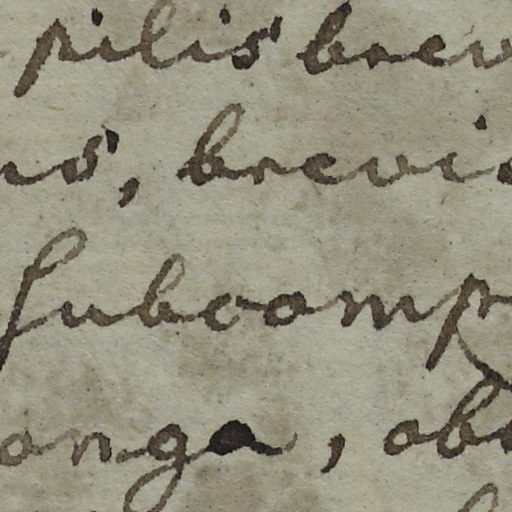 pilis brev
us, brevio
subcomp
onga, obo